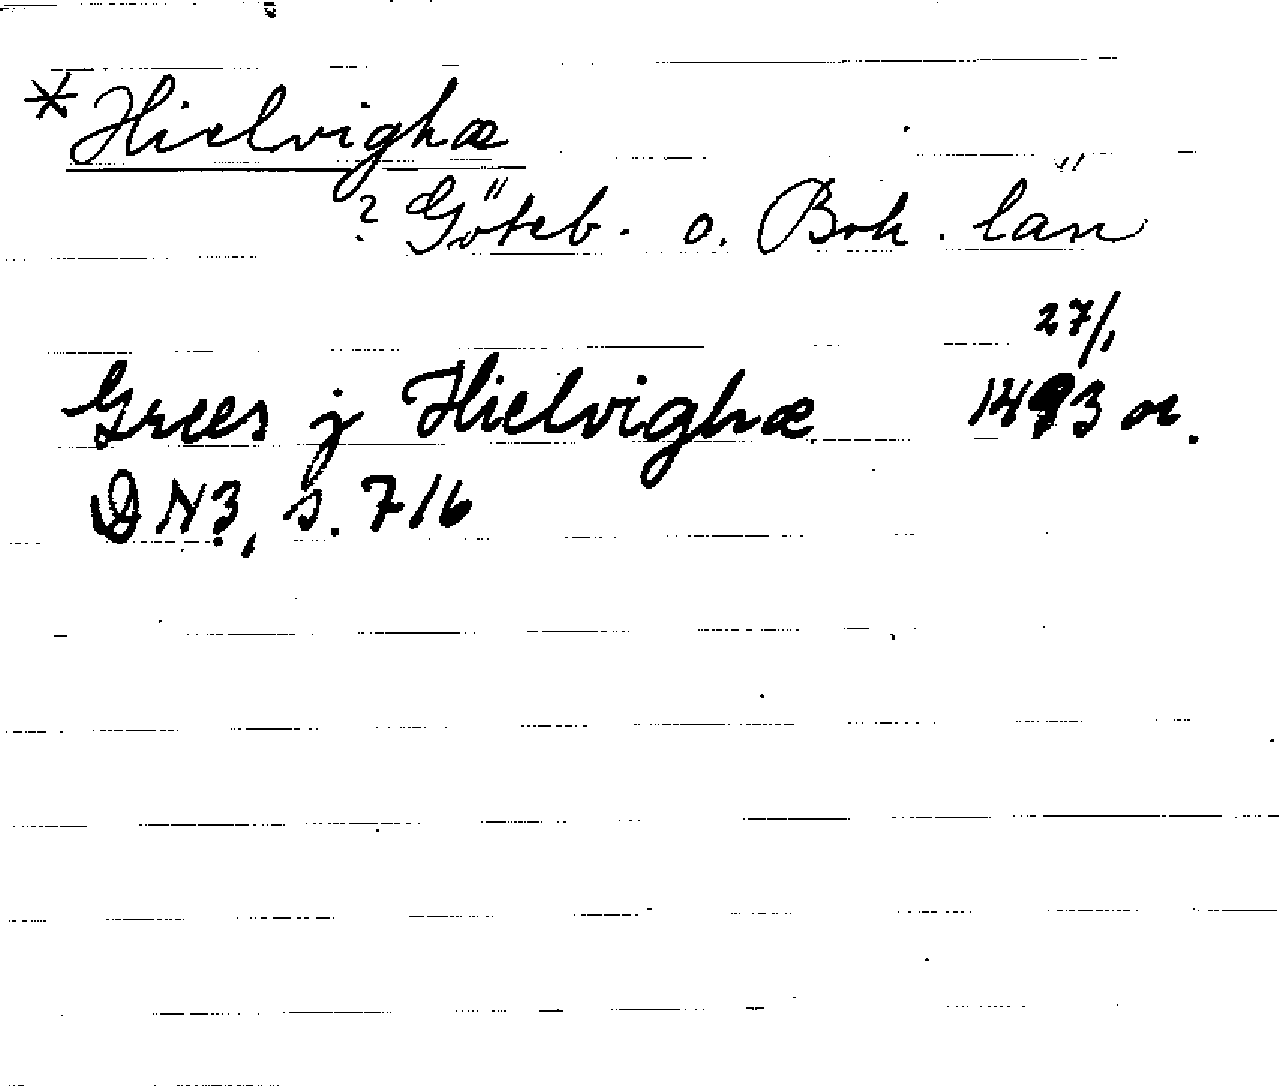 *Hielvighæ
? Göteb. o. Boh. län
Grees j Hielvighæ 27/1 1493 or.
DN3, s. 716